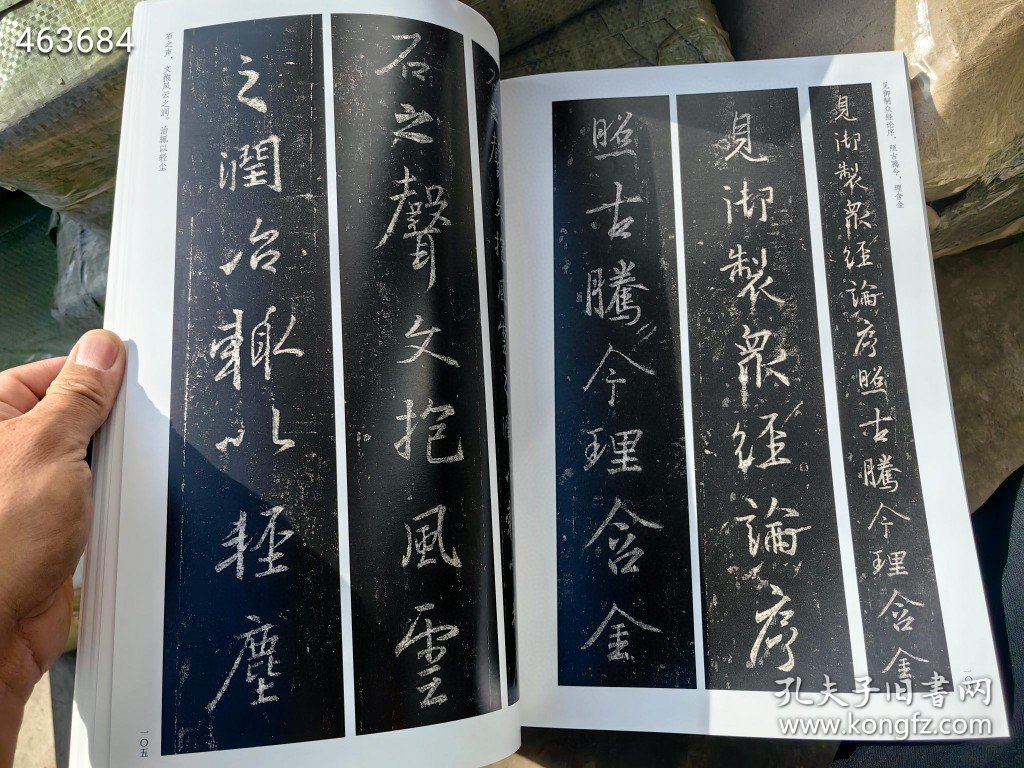 463684
见御制众经论序，照古腾今，理含金
見御製衆經論序照古騰今理含金
見御製衆經論序
照古騰今理含金
石之声，文抱风云之润。治辄以轻尘
石之聲文抱風雲
之潤治輒以輕塵
一〇五
孔夫子旧书网
www.kongfz.com